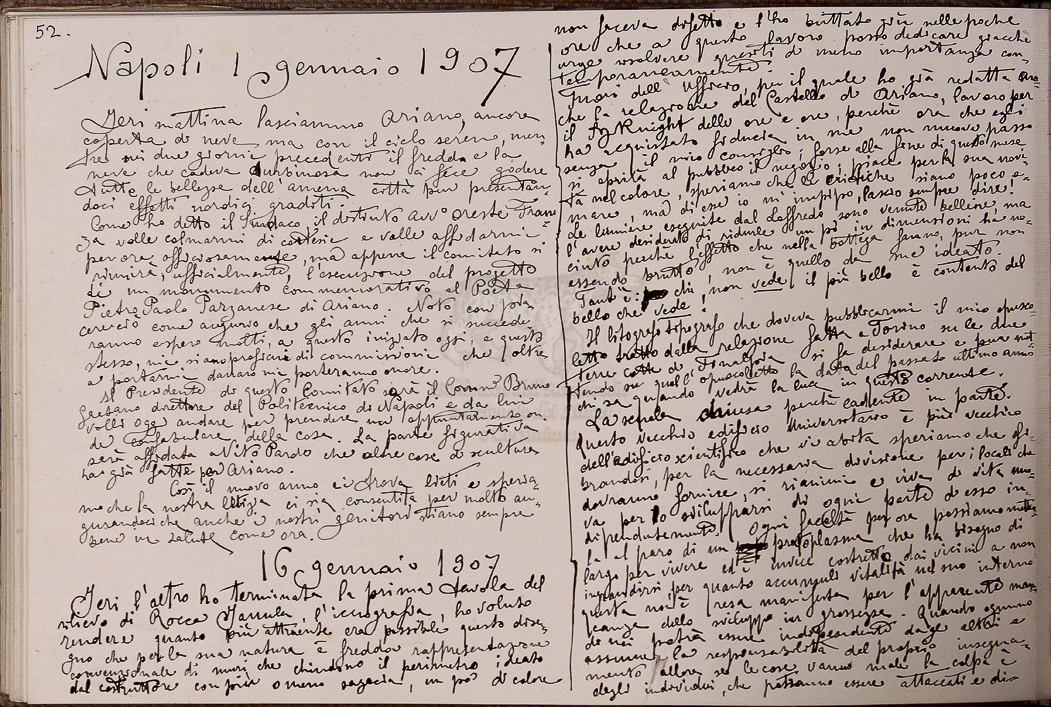 52.
Napoli 1 gennaio 1907
Jeri mattina lasciammo Ariano, ancora
coperta di neve ma con il cielo sereno, men
tre nei due giorni precedenti il freddo e la
neve che cadeva turbinosa non ci fece godere
tutte le bellezze dell'amena città pur presentan
doci effetti nordici graditi.
Come ho detto il Sindaco il distinto avvo Oreste
za volle colmarmi di cortesie e volle affidarmi
per ora officiosamente, ma appena il comitato si
riunirà, ufficialmente, l'esecuzione del progetto
di un monumento commemorativo al Poeta
Pietro Paolo Parzanese di Ariano. Noto con
come augurio che gli anni che si succede
ranno espero molti, a questo iniziato oggi e questo
stesso, mi siano proficui di commissioni che oltre
a portarmi danaro mi porteranno onore.
Il Presidente di questo Comitato sarà il Comm Bruno
Gaetano direttore del Politecnico di Napoli e da lui
volli oggi andare per prendere un appuntamento on
de confabulare della cosa. La parte figurativa
sarà affidata a Vito Pardo che altre cose di scultura
ha già fatte per Ariano.
Così il nuovo anno ci trova lieti e speria
mo che la nostra letizia ci sia consentita per molto au
gurandoci che anche i nostri genitori stiano sempre
bene in salute come ora.
16 gennaio 1907
Jeri l'altro ho terminata la prima tavola del
rilievo di Rocca Janula, l'icnografia, ho voluto
rendere quanto più attraente era possibile questo dise
gno che per la sua natura è fredda rappresentazione
convenzionale di muri che chiudono il perimetro ideato
dal costruttore con più o meno sagacia, un po' di colore
non faceva difetto e l'ho buttato giù nelle poche
ore che a questo lavoro posso dedicare giacchè
urge risolvere quesiti di meno importanza con
temporaneamente.
Fuori dell'Ufficio, per il quale ho già redatta an
che la relazione del Castello di Ariano, lavoro per
il Knight delle ore e ore, perchè ora che egli
ha acquistato fiducia in me non muove passo
senza il mio consiglio; forse alla fine di questo mese
si aprirà al pubblico il negozio; piace per la sua novi
tà nel colore, speriamo che le critiche siano poco a
mare, ma di esse io mi infischio, lascio sempre dire!
Le lumiere eseguite dal Laffredo sono venute belline, ma
l'avere desiderato di ridurle un pò in dimensioni ha no
ciuto perchè l'effetto che nella bottega fanno, pur non
essendo brutto, non è quello da me ideato.
Tant'è: chi non vede il più bello è contento del
bello che vede.
Il litografo tipografo che doveva pubblicarmi il mio opusco
letto tratto dalla relazione fatta a Torino su le due
terre cotte di Finalpia si fa desiderare e pur met
tendo su quell'opuscoletto la data del passato ultimo anno
chi sa quando vedrà la luce in questo corrente.
La scuola chiusa perchè cadente in parte.
Questo vecchio edificio Universitario è più vecchio
dell'edificio scientifico che vi abita speriamo che
brandosi, per la necessaria divisione per i locali che
dovranno fornire, si rianimi e viva di vita nuo
va per lo svilupparsi di ogni parte d'esso in
dipendentemente. Ogni facoltà per ora possiamo
la al paro di un protoplasma che ha bisogno di
largo per vivere ed è invece costretto dai vicini a non
ingrandirsi, per quanto accumuli vitalità nel suo interno
questa non è resa manifesta per l'apparente man
canza dello sviluppo in grossezza. Quando ognuno
di noi potrà essere indipendente dagli altri e
assumere la responsabilità del proprio insegna
mento allora se le cose vanno male la colpa è
degli individui, che potranno essere attaccati e di